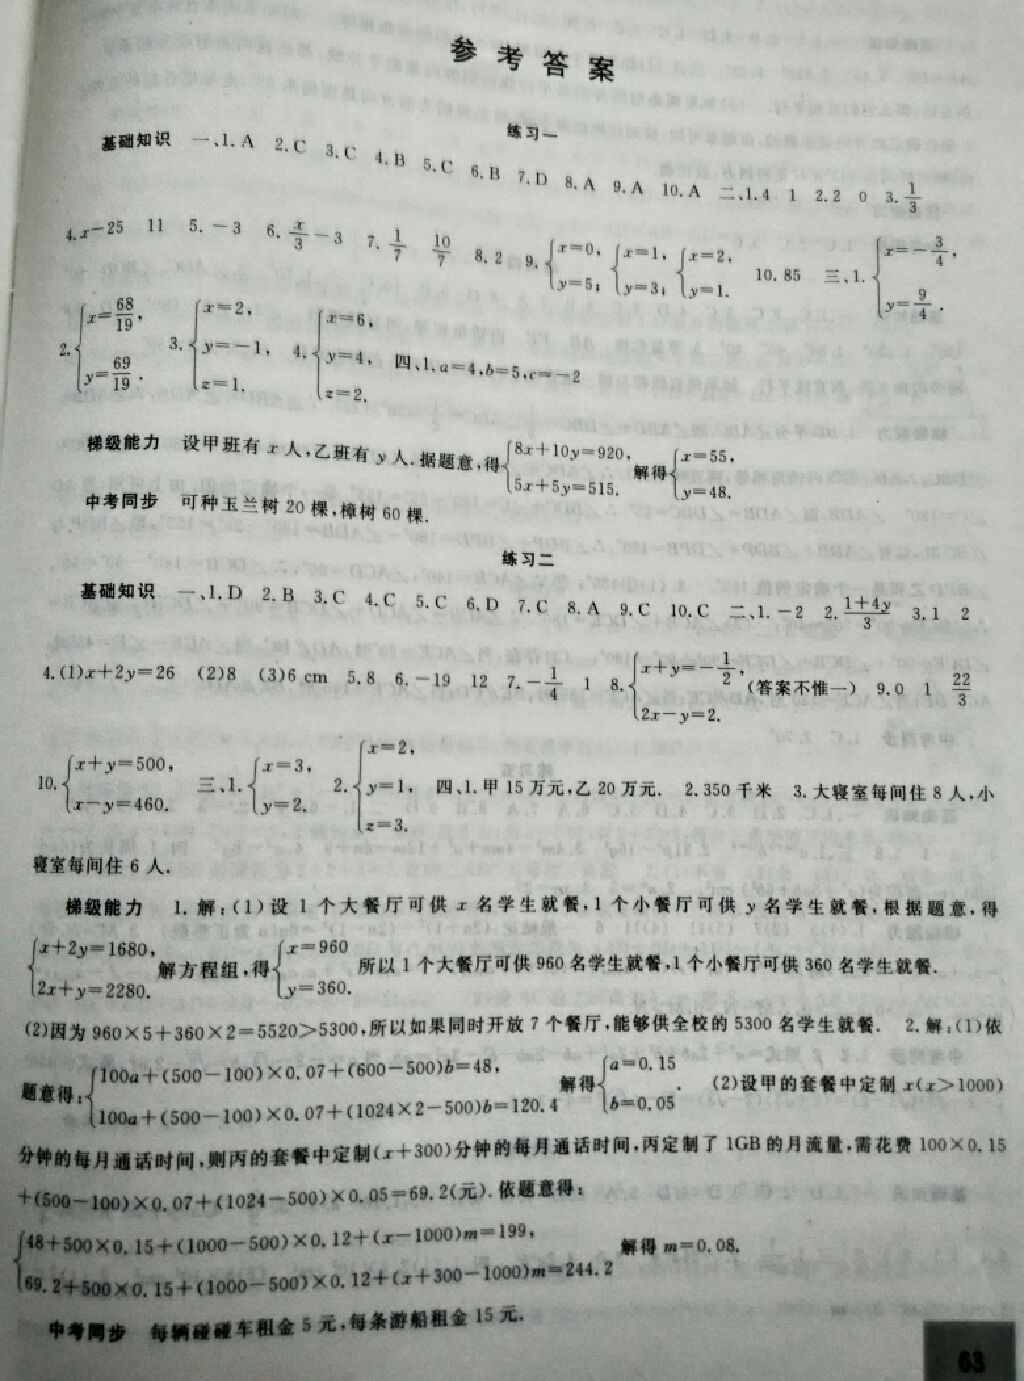 参考答案
练习一
基础知识 一、1.A 2.C 3.C 4.B 5.C 6.B 7.D 8.A 9.A 10.A 二、1.4 1 2.2 0 3.1/3
4.x-25 11 5.-3 6.x/3-3 7.1/7 10/7 8.2 9.{x=0,y=5; {x=1,y=3; {x=2,y=1. 10.85 三、1.{x=-3/4,y=9/4.
2.{x=68/19,y=69/19. 3.{x=2,y=-1,z=1. 4.{x=6,y=4,z=2. 四、1.a=4,b=5,c=-2
梯级能力 设甲班有x人,乙班有y人.据题意,得{8x+10y=920,5x+5y=515. 解得{x=55,y=48.
中考同步 可种玉兰树20棵,樟树60棵.
练习二
基础知识 一、1.D 2.B 3.C 4.C 5.C 6.D 7.C 8.A 9.C 10.C 二、1.-2 2.(1+4y)/3 3.1 2
4.(1)x+2y=26 (2)8 (3)6 cm 5.8 6.-19 12 7.-1/4 1 8.{x+y=-1/2,2x-y=2. (答案不惟一) 9.0 1 22/3
10.{x+y=500,x-y=460. 三、1.{x=3,y=2. 2.{x=2,y=1,z=3. 四、1.甲15万元,乙20万元. 2.350千米 3.大寝室每间住8人,小
寝室每间住6人.
梯级能力 1.解:(1)设1个大餐厅可供x名学生就餐,1个小餐厅可供y名学生就餐,根据题意,得
{x+2y=1680,2x+y=2280. 解方程组,得{x=960 y=360. 所以1个大餐厅可供960名学生就餐,1个小餐厅可供360名学生就餐.
(2)因为960×5+360×2=5520>5300,所以如果同时开放7个餐厅,能够供全校的5300名学生就餐. 2.解:(1)依
题意得:{100a+(500-100)×0.07+(600-500)b=48,100a+(500-100)×0.07+(1024×2-500)b=120.4 解得{a=0.15 b=0.05. (2)设甲的套餐中定制x(x>1000)
分钟的每月通话时间,则丙的套餐中定制(x+300)分钟的每月通话时间,丙定制了1GB的月流量,需花费100×0.15
+(500-100)×0.07+(1024-500)×0.05=69.2(元).依题意得:
{48+500×0.15+(1000-500)×0.12+(x-1000)m=199,69.2+500×0.15+(1000-500)×0.12+(x+300-1000)m=244.2 解得m=0.08.
中考同步 每辆碰碰车租金5元,每条游船租金15元.
63